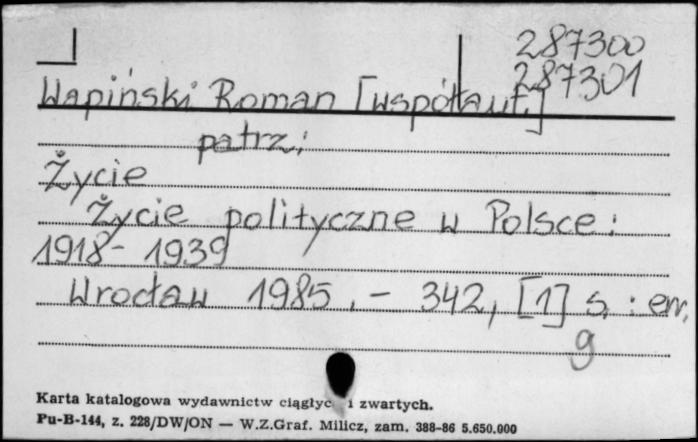 287300
287301
Wapiński Roman [współaut.]
patrz:
Życie
Życie polityczne w Polsce :
1918 - 1939
Wrocław 1985. - 342, [1] s. : err.
g
Karta katalogowa wydawnictw ciągłyc i zwartych.
Pu-B-144, z. 228/DW/ON — W.Z.Graf. Milicz, zam. 388-86 5.650.000